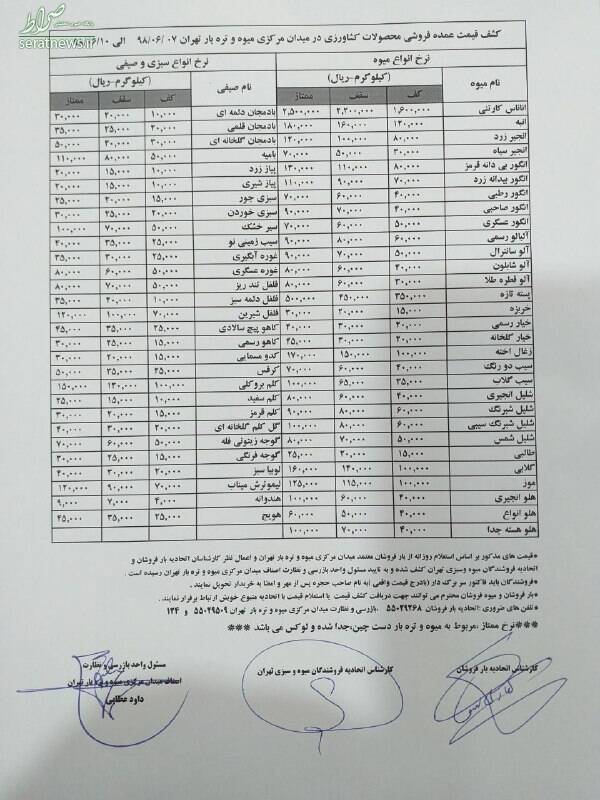 صراط
پایگاه خبری تحلیلی
seratnews.ir
کشف قیمت عمده فروشی محصولات کشاورزی در میدان مرکزی میوه و تره بار تهران ۹۸/۰۶/۰۷ الی ۰۶/۱۰
نرخ انواع میوه نرخ انواع سبزی و صیفی
نام میوه (کیلوگرم-ریال) نام صیفی (کیلوگرم-ریال)
کف سقف ممتاز کف سقف ممتاز
آناناس کارتنی ۱,۶۰۰,۰۰۰ ۲,۲۰۰,۰۰۰ ۲,۵۰۰,۰۰۰ بادمجان دلمه ای ۱۰,۰۰۰ ۲۰,۰۰۰ ۳۰,۰۰۰
انبه ۱۲۰,۰۰۰ ۱۶۰,۰۰۰ ۱۸۰,۰۰۰ بادمجان قلمی ۲۰,۰۰۰ ۲۵,۰۰۰ ۳۵,۰۰۰
انجیر زرد ۸۰,۰۰۰ ۱۰۰,۰۰۰ ۱۲۰,۰۰۰ بادمجان گلخانه ای ۳۰,۰۰۰ ۴۰,۰۰۰ ۵۰,۰۰۰
انجیر سیاه ۳۰,۰۰۰ ۵۰,۰۰۰ ۷۰,۰۰۰ بامیه ۵۰,۰۰۰ ۸۰,۰۰۰ ۱۱۰,۰۰۰
انگور بی دانه قرمز ۸۰,۰۰۰ ۱۱۰,۰۰۰ ۱۳۰,۰۰۰ پیاز زرد ۱۰,۰۰۰ ۱۵,۰۰۰ ۲۰,۰۰۰
انگور بیدانه زرد ۷۰,۰۰۰ ۹۰,۰۰۰ ۱۱۰,۰۰۰ پیاز شیری ۱۰,۰۰۰ ۱۵,۰۰۰ ۲۰,۰۰۰
انگور رطبی ۴۰,۰۰۰ ۶۰,۰۰۰ ۷۰,۰۰۰ سبزی جور ۱۵,۰۰۰ ۲۰,۰۰۰ ۲۵,۰۰۰
انگور صاحبی ۴۰,۰۰۰ ۷۰,۰۰۰ ۹۰,۰۰۰ سبزی خوردن ۲۰,۰۰۰ ۲۵,۰۰۰ ۳۰,۰۰۰
انگور عسکری ۵۰,۰۰۰ ۶۰,۰۰۰ ۷۰,۰۰۰ سیر خشک ۵۰,۰۰۰ ۷۰,۰۰۰ ۱۰۰,۰۰۰
آلبالو رسمی ۶۰,۰۰۰ ۸۰,۰۰۰ ۹۰,۰۰۰ سیب زمینی نو ۲۵,۰۰۰ ۳۵,۰۰۰ ۴۰,۰۰۰
آلو سانترال ۵۰,۰۰۰ ۷۰,۰۰۰ ۹۰,۰۰۰ غوره آبگیری ۲۵,۰۰۰ ۳۰,۰۰۰ ۳۵,۰۰۰
آلو شابلون ۴۰,۰۰۰ ۶۰,۰۰۰ ۸۰,۰۰۰ غوره عسگری ۵۰,۰۰۰ ۶۰,۰۰۰ ۸۰,۰۰۰
آلو قطره طلا ۳۰,۰۰۰ ۶۰,۰۰۰ ۸۰,۰۰۰ فلفل تند ریز ۵۰,۰۰۰ ۷۰,۰۰۰ ۸۰,۰۰۰
پسته تازه ۳۵۰,۰۰۰ ۴۵۰,۰۰۰ ۵۰۰,۰۰۰ فلفل دلمه سبز ۱۰,۰۰۰ ۲۰,۰۰۰ ۳۵,۰۰۰
خربزه ۱۵,۰۰۰ ۲۰,۰۰۰ ۳۰,۰۰۰ فلفل شیرین ۷۰,۰۰۰ ۱۰۰,۰۰۰ ۱۲۰,۰۰۰
خیار رسمی ۲۰,۰۰۰ ۳۰,۰۰۰ ۴۰,۰۰۰ کاهو پیچ سالادی ۲۵,۰۰۰ ۳۵,۰۰۰ ۴۵,۰۰۰
خیار گلخانه ۲۰,۰۰۰ ۳۰,۰۰۰ ۴۵,۰۰۰ کاهو رسمی ۱۵,۰۰۰ ۲۵,۰۰۰ ۳۰,۰۰۰
زغال اخته ۱۰۰,۰۰۰ ۱۵۰,۰۰۰ ۱۷۰,۰۰۰ کدو مسمایی ۱۵,۰۰۰ ۲۵,۰۰۰ ۳۰,۰۰۰
سیب دو رنگ ۴۰,۰۰۰ ۶۰,۰۰۰ ۷۰,۰۰۰ کرفس ۲۵,۰۰۰ ۳۵,۰۰۰ ۵۰,۰۰۰
سیب گلاب ۳۵,۰۰۰ ۶۵,۰۰۰ ۱۰۰,۰۰۰ کلم بروکلی ۱۰۰,۰۰۰ ۱۳۰,۰۰۰ ۱۵۰,۰۰۰
شلیل انجیری ۴۰,۰۰۰ ۶۰,۰۰۰ ۸۰,۰۰۰ کلم سفید ۱۰,۰۰۰ ۱۵,۰۰۰ ۲۵,۰۰۰
شلیل شبرنگ ۶۰,۰۰۰ ۸۰,۰۰۰ ۹۰,۰۰۰ کلم قرمز ۱۵,۰۰۰ ۲۰,۰۰۰ ۳۰,۰۰۰
شلیل شبرنگ سیبی ۶۰,۰۰۰ ۸۰,۰۰۰ ۱۰۰,۰۰۰ گل کلم گلخانه ای ۲۰,۰۰۰ ۳۰,۰۰۰ ۴۰,۰۰۰
شلیل شمس ۵۰,۰۰۰ ۷۰,۰۰۰ ۸۰,۰۰۰ گوجه زیتونی فله ۵۰,۰۰۰ ۶۰,۰۰۰ ۷۰,۰۰۰
طالبی ۱۵,۰۰۰ ۲۰,۰۰۰ ۲۵,۰۰۰ گوجه فرنگی ۱۵,۰۰۰ ۲۵,۰۰۰ ۳۰,۰۰۰
گلابی ۱۰۰,۰۰۰ ۱۴۰,۰۰۰ ۱۶۰,۰۰۰ لوبیا سبز ۲۰,۰۰۰ ۳۰,۰۰۰ ۴۰,۰۰۰
موز ۱۰۰,۰۰۰ ۱۱۵,۰۰۰ ۱۲۵,۰۰۰ لیموترش میناب ۷۰,۰۰۰ ۹۰,۰۰۰ ۱۲۰,۰۰۰
هلو انجیری ۴۰,۰۰۰ ۶۰,۰۰۰ ۱۰۰,۰۰۰ هندوانه ۴,۰۰۰ ۷,۰۰۰ ۹,۰۰۰
هلو انواع ۴۰,۰۰۰ ۵۰,۰۰۰ ۶۰,۰۰۰ هویج ۲۵,۰۰۰ ۳۵,۰۰۰ ۴۵,۰۰۰
هلو هسته جدا ۴۰,۰۰۰ ۷۰,۰۰۰ ۱۰۰,۰۰۰
*قیمت های مذکور بر اساس استعلام روزانه از بار فروشان معتمد میدان مرکزی میوه و تره بار تهران و اعمال نظر کارشناسان اتحادیه بار فروشان و
اتحادیه فروشندگان میوه وسبزی تهران کشف شده و به تایید مسئول واحد بازرسی و نظارت اصناف میدان مرکزی میوه و تره بار تهران رسیده است .
*فروشندگان باید فاکتور سر برگ دار (بادرج قیمت واقعی )به نام صاحب حجره پس از مهر و امضا به خریدار تحویل نمایند .
*بار فروشان و میوه فروشان محترم می توانند جهت دریافت کشف قیمت و استعلام قیمت با اتحادیه متبوع خویش ارتباط برقرار نمایند .
*تلفن های ضروری :اتحادیه بار فروشان ۵۵۰۲۹۲۶۸ .بازرسی و نظارت میدان مرکزی میوه و تره بار تهران ۵۵۰۲۹۵۰۹ و ۱۲۴
***نرخ ممتاز ،مربوط به میوه و تره بار دست چین،جدا شده و لوکس می باشد ***
کارشناس اتحادیه بار فروشان
کارشناس اتحادیه فروشندگان میوه و سبزی تهران
مسئول واحد بازرسی و نظارت
اصناف میدان مرکزی میوه و تره بار تهران
داود عطایی